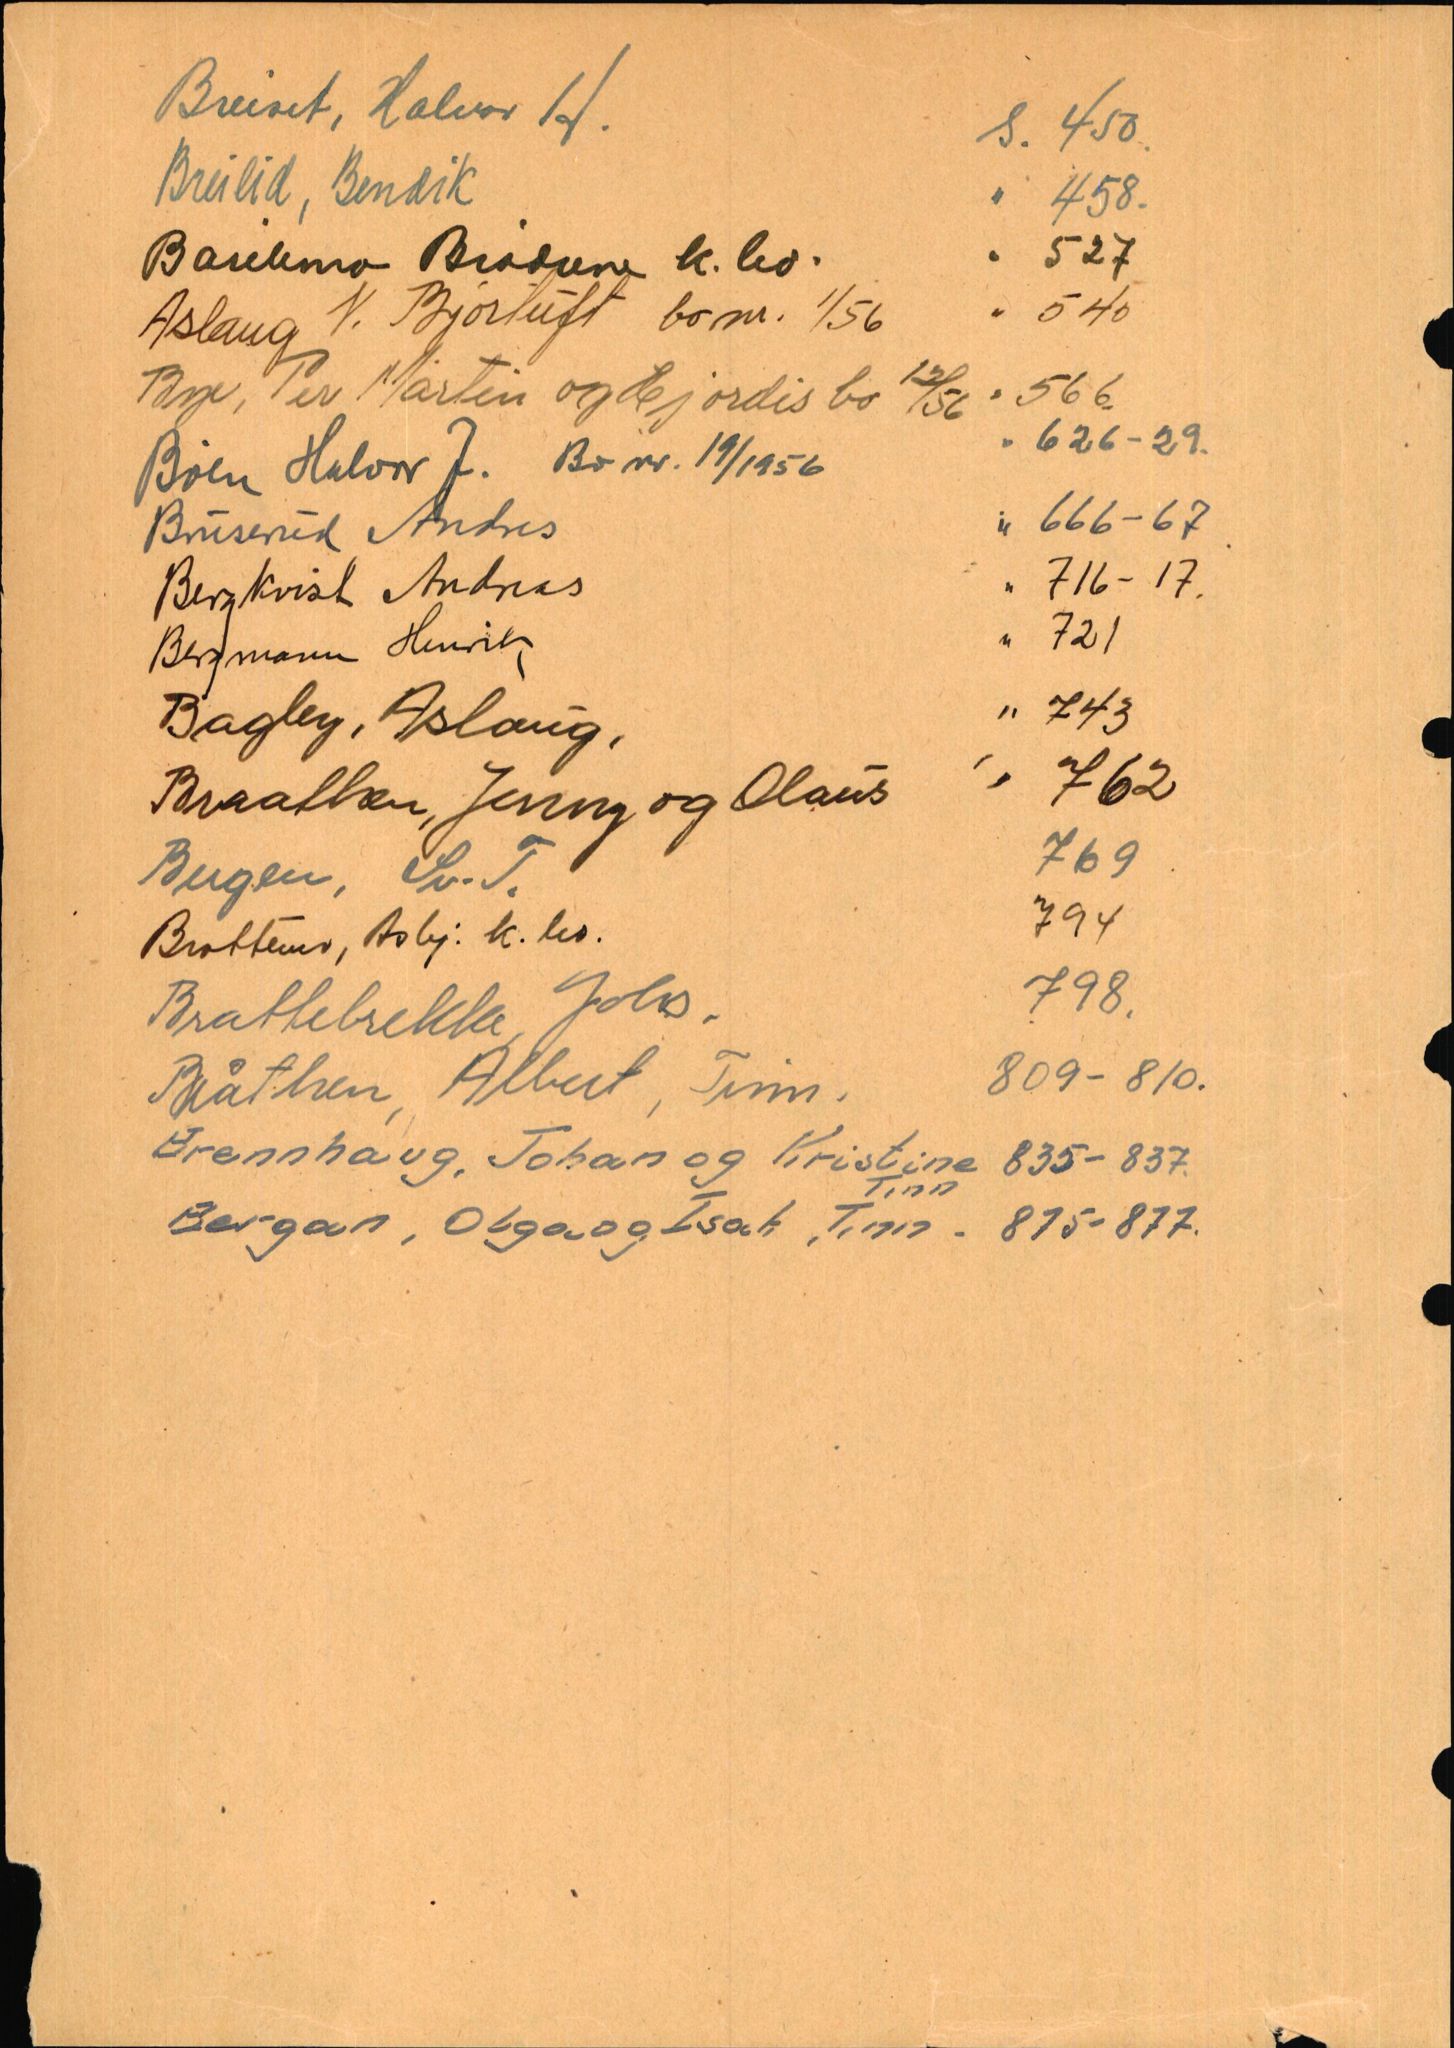 Breiset, Halvor H. S. 450.
Breilid, Bendik " 458.
Brødrene k. bo. " 527
Aslaug N. Bjørtuft bo nr. 1/56 " 540
Bye, Per Martin og Hjørdis bo 12/56 " 566.
Bøen Halvor J. Bo nr. 19/1956 " 626-29.
Bruserud Andres " 666-67
Bergkvist Andreas " 716-17.
Bergmann Henrik " 721
Bagley, Aslaug, " 743
Braathen, Jenny og Olaus " 762
Bergen, Sv. T. 769
Asbj. k. bo. 794
Brattebrekke, Johs. 798.
Bråthen, Albert, Tinn. 809-810.
Brennhaug, Johan og Kristine 835-837.
Tinn
Bergan, Olga og Isak, Tinn - 875-877.